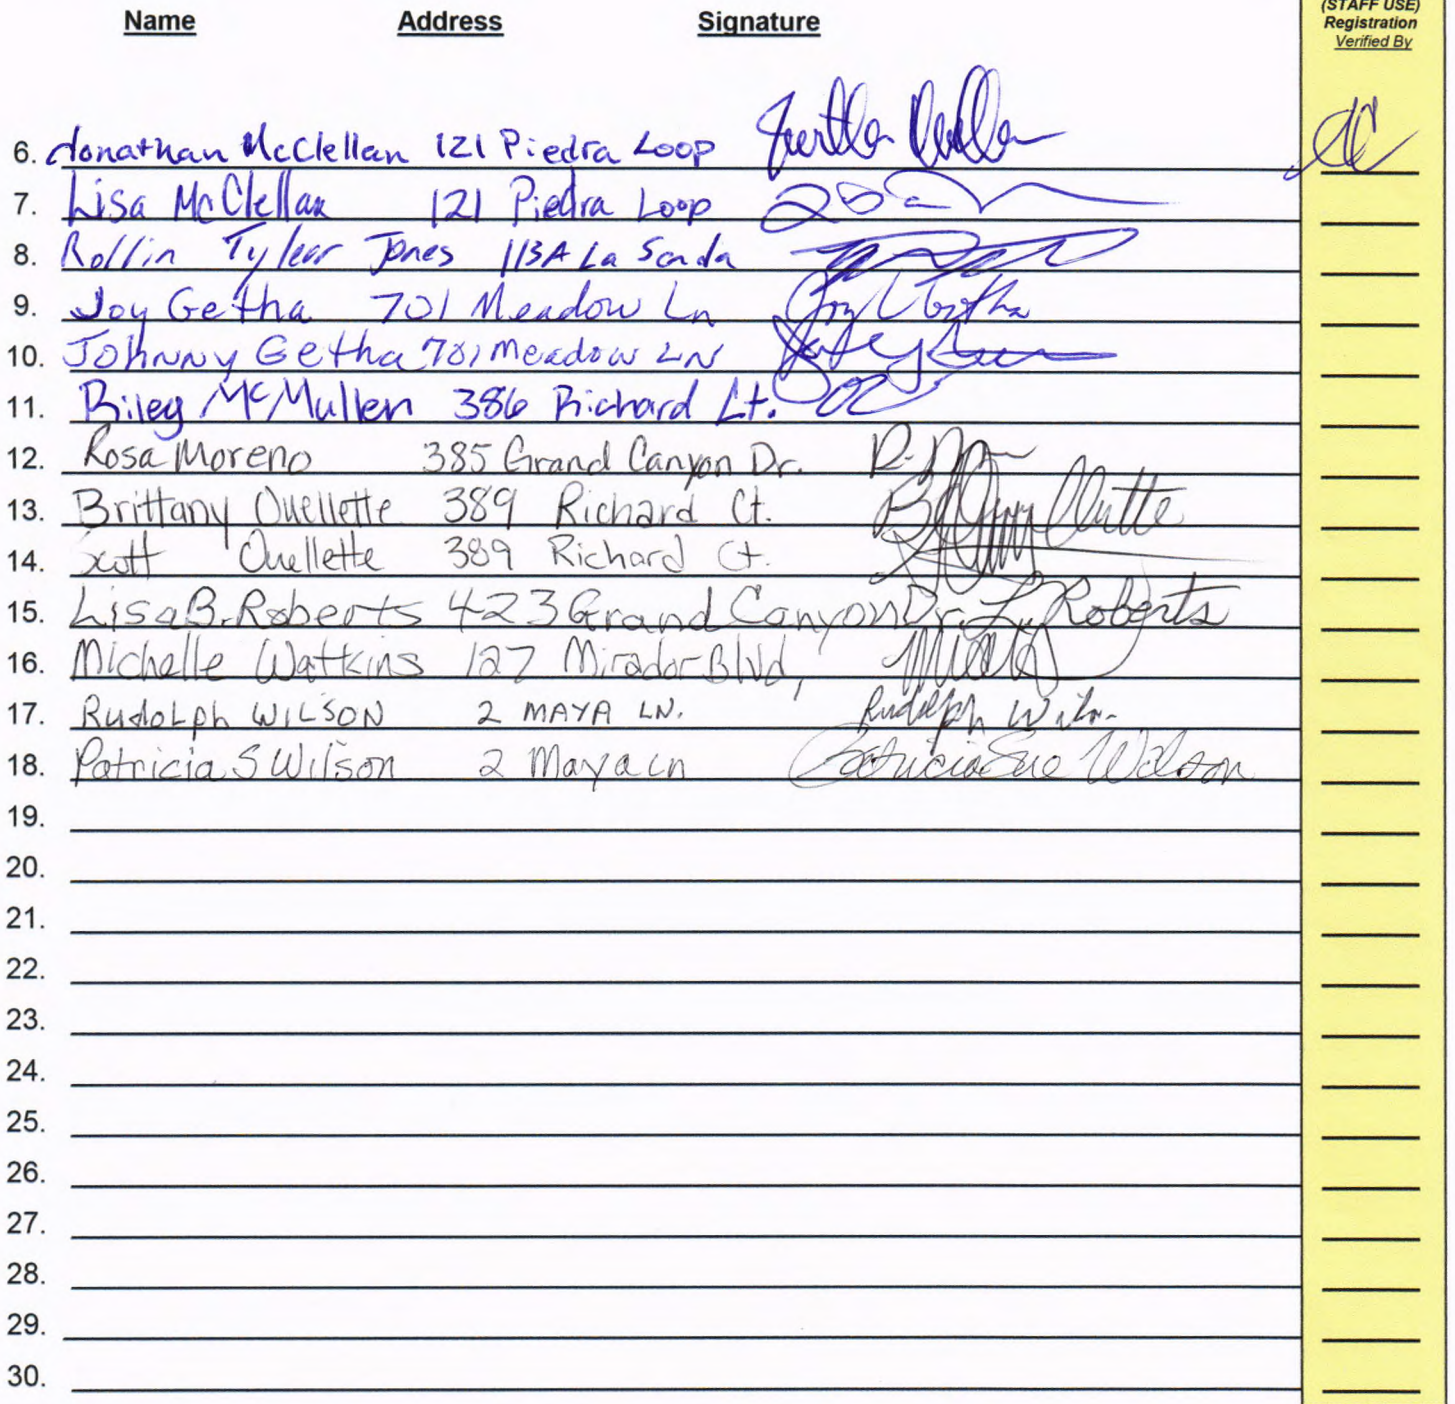 (STAFF USE)
Name Address Signature Registration
Verified By
6. Jonathan McClellan 121 Piedra Loop
7. Lisa McClellan 121 Piedra Loop
8. Rollin Tylear Jones 113A La Senda
9. Joy Getha 701 Meadow Ln Joy Getha
10. Johnny Getha 701 Meadow LN
11. Riley McMullen 386 Richard Ct.
12. Rosa Moreno 385 Grand Canyon Dr.
13. Brittany Ouellette 389 Richard Ct.
14. Scott Ouellette 389 Richard Ct.
15. Lisa B. Roberts 423 Grand Canyon Dr. L. Roberts
16. Michelle Watkins 127 Mirador Blvd,
17. Rudolph WILSON 2 MAYA LN. Rudolph Wilson
18. Patricia S Wilson 2 Maya Ln Patricia Sue Wilson
19.
20.
21.
22.
23.
24.
25.
26.
27.
28.
29.
30.